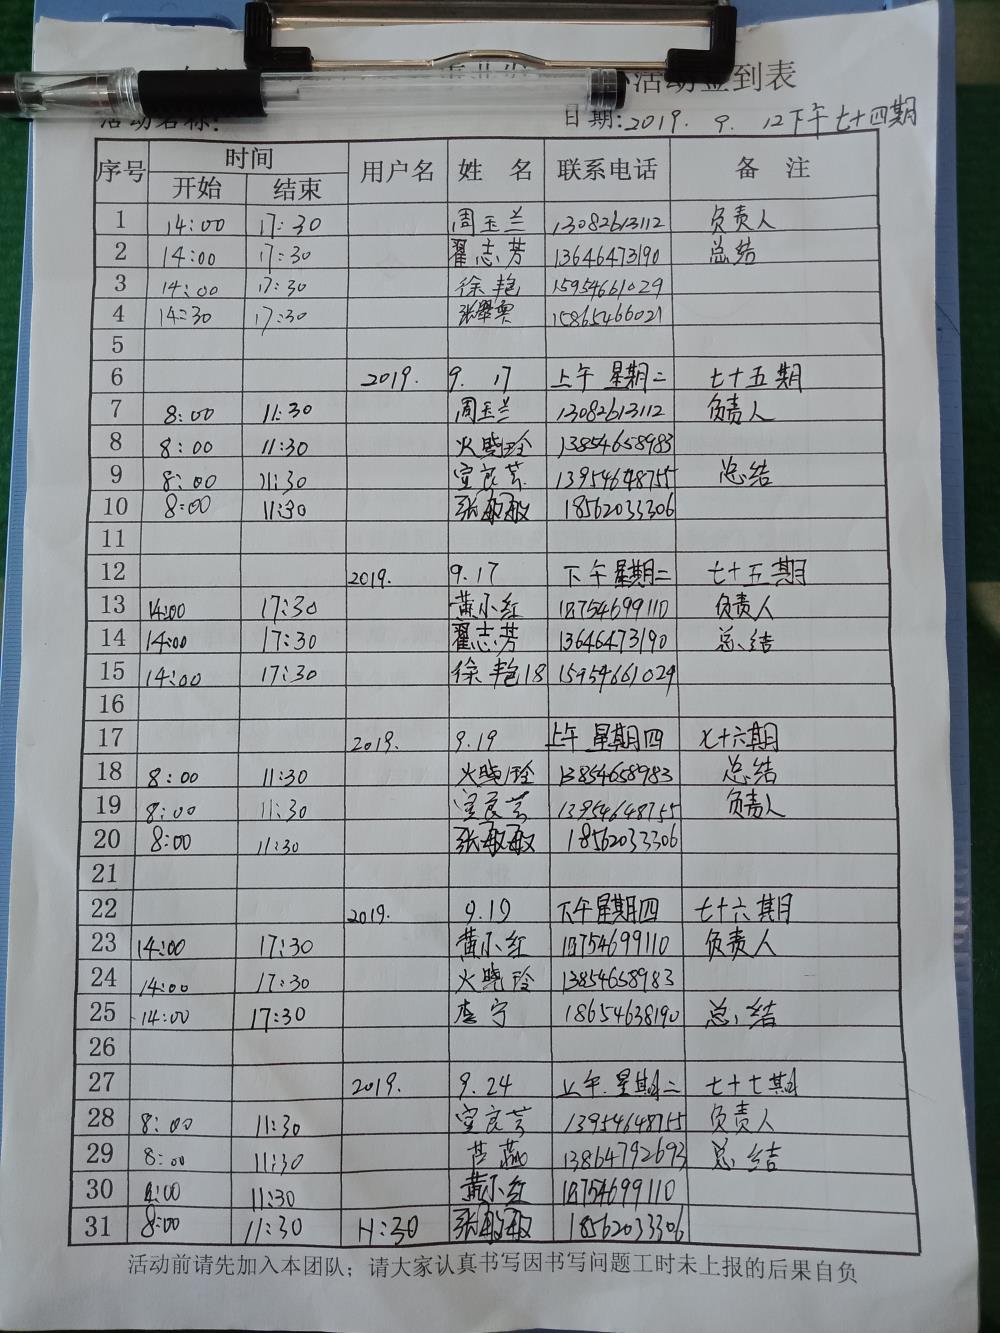 活动签到表
活动名称: 日期:2019. 9. 12下午七十四期
序号 时间 用户名 姓 名 联系电话 备 注
开始 结束
1 14:00 17:30 周玉兰 13082613112 负责人
2 14:00 17:30 翟志芳 13646473190 总结
3 14:00 17:30 徐艳 15954661029
4 14:30 17:30 15865466021
5
6 2019. 9. 17 上午 星期二 七十五期
7 8:00 11:30 周玉兰 13082613112 负责人
8 8:00 11:30 火晓玲 13854658983
9 8:00 11:30 宣良芸 13954648755 总结
10 8:00 11:30 张敏敏 18562033306
11
12 2019. 9.17 下午星期二 七十五期
13 14:00 17:30 黄小红 18754699110 负责人
14 14:00 17:30 翟志芳 13646473190 总结
15 14:00 17:30 徐艳18 15954661029
16
17 2019. 9.19 上午 星期四 七十六期
18 8:00 11:30 火晓玲 13854658983 总结
19 8:00 11:30 宣良芸 13954648755 负责人
20 8:00 11:30 张敏敏 18562033306
21
22 2019. 9.19 下午星期四 七十六期
23 14:00 17:30 黄小红 18754699110 负责人
24 14:00 17:30 火晓玲 13854658983
25 14:00 17:30 李宁 18654638190 总结
26
27 2019. 9.24 上午.星期二 七十七期
28 8:00 11:30 宣良芸 13954648755 负责人
29 8:00 11:30 芦燕 13864792693 总结
30 8:00 11:30 黄小红 18754699110
31 8:00 11:30 11:30 张敏敏 18562033306
活动前请先加入本团队；请大家认真书写因书写问题工时未上报的后果自负